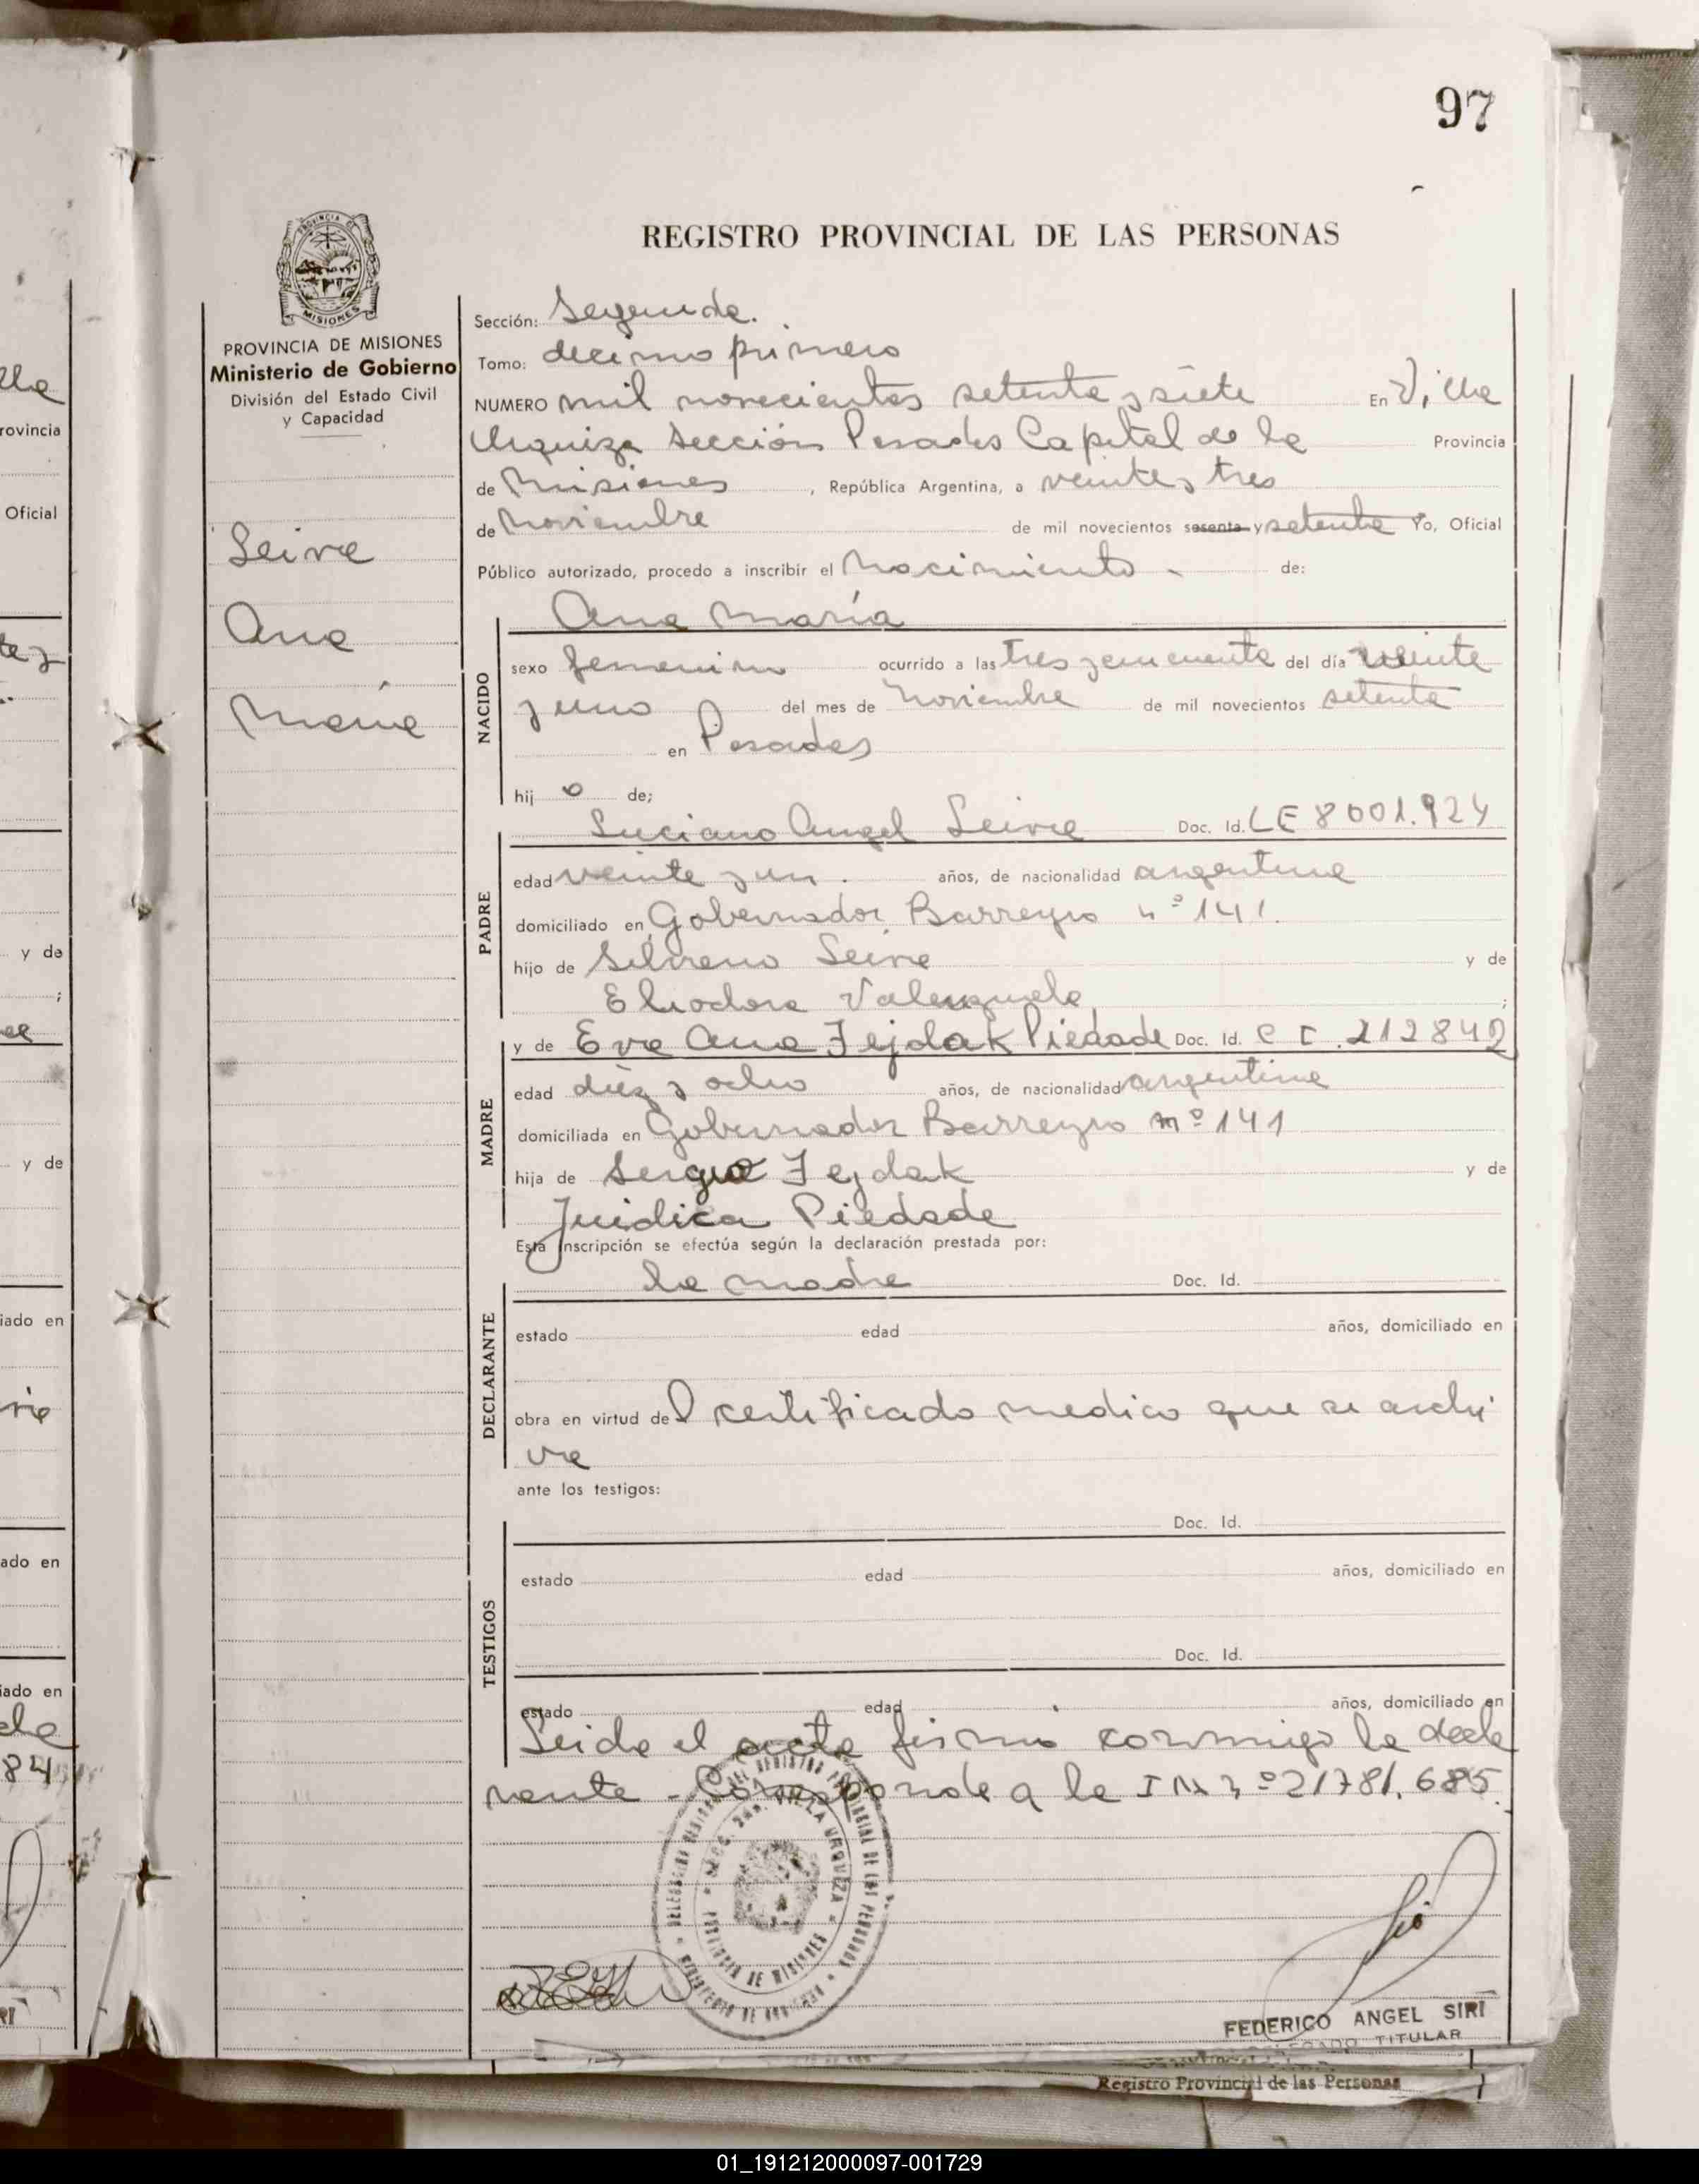 97
REGISTRO PROVINCIAL DE LAS PERSONAS
PROVINCIA DE MISIONES
Ministerio de Gobierno
División del Estado Civil
y Capacidad
Leiva
Ana
María
Sección: Segunda.
Tomo: decimo primero
NUMERO mil novecientos setenta y siete En Villa
Urquiza Sección Posadas Capital de la Provincia
de Misiones, República Argentina, a veinte y tres
de Noviembre de mil novecientos sesenta y setenta Yo, Oficial
Público autorizado, procedo a inscribir el Nacimiento - de:
Ana María
NACIDO
sexo femenino ocurrido a las tres y cincuenta del día veinte
y uno del mes de Noviembre de mil novecientos setenta
en Posadas
hij o de;
Luciano Angel Leiva Doc. Id. LE 8001.924
PADRE
edad veinte y un. años, de nacionalidad argentina
domiciliado en Gobernador Barreyro nº 141.
hijo de Silvano Leiva y de
Eliodora Valenzuela;
y de Eva Ana Fejdak Piedade Doc. Id. C I. 212842
MADRE
edad diez y ocho años, de nacionalidad argentina
domiciliada en Gobernador Barreyro nº 141
hija de Sergio Fejdak y de
Juidica Piedade
Esta inscripción se efectúa según la declaración prestada por:
la madre Doc. Id.
DECLARANTE
estado edad años, domiciliado en
obra en virtud del certificado medico que se archi
va
ante los testigos:
Doc. Id.
TESTIGOS
estado edad años, domiciliado en
Doc. Id.
estado edad años, domiciliado en
Leida el acta firmó conmigo la decla
rante - Corresponde a la I M nº 21781.685.
SECC. 2da. VILLA URQUIZA
PROVINCIA DE MISIONES
FEDERICO ANGEL SIRI
DELEGADO TITULAR
Registro Provincial de las Personas
01_191212000097-001729